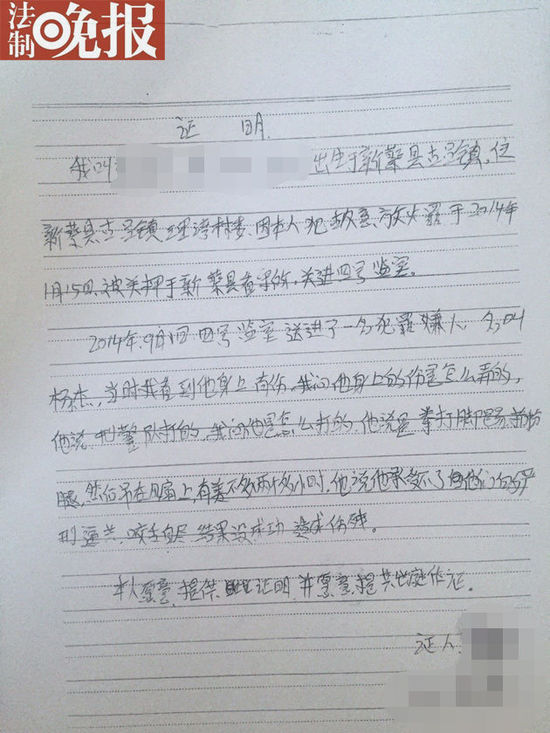 法制晚报
证 明
我叫 出生于新蔡县古吕镇,住
新蔡县古吕镇 湾村楼,因本人犯故意放火罪于2014年
1月15日被关押于新蔡县看守所,关进四号监室。
2014年9月1日四号监室送进了一名犯罪嫌人,名叫
杨杰,当时我看到他身上有伤,我问他身上的伤是怎么弄的,
他说 刑警队打的,我问他是怎么打的,他说是拳打脚踢
腿,然后吊在风扇上,有差不多两个多小时,他说他承受不了他们的严
刑逼 ,咬舌自尽 结果没成功 造成伤残。
本人愿意提供 证明 并愿意提供出庭作证。
证人